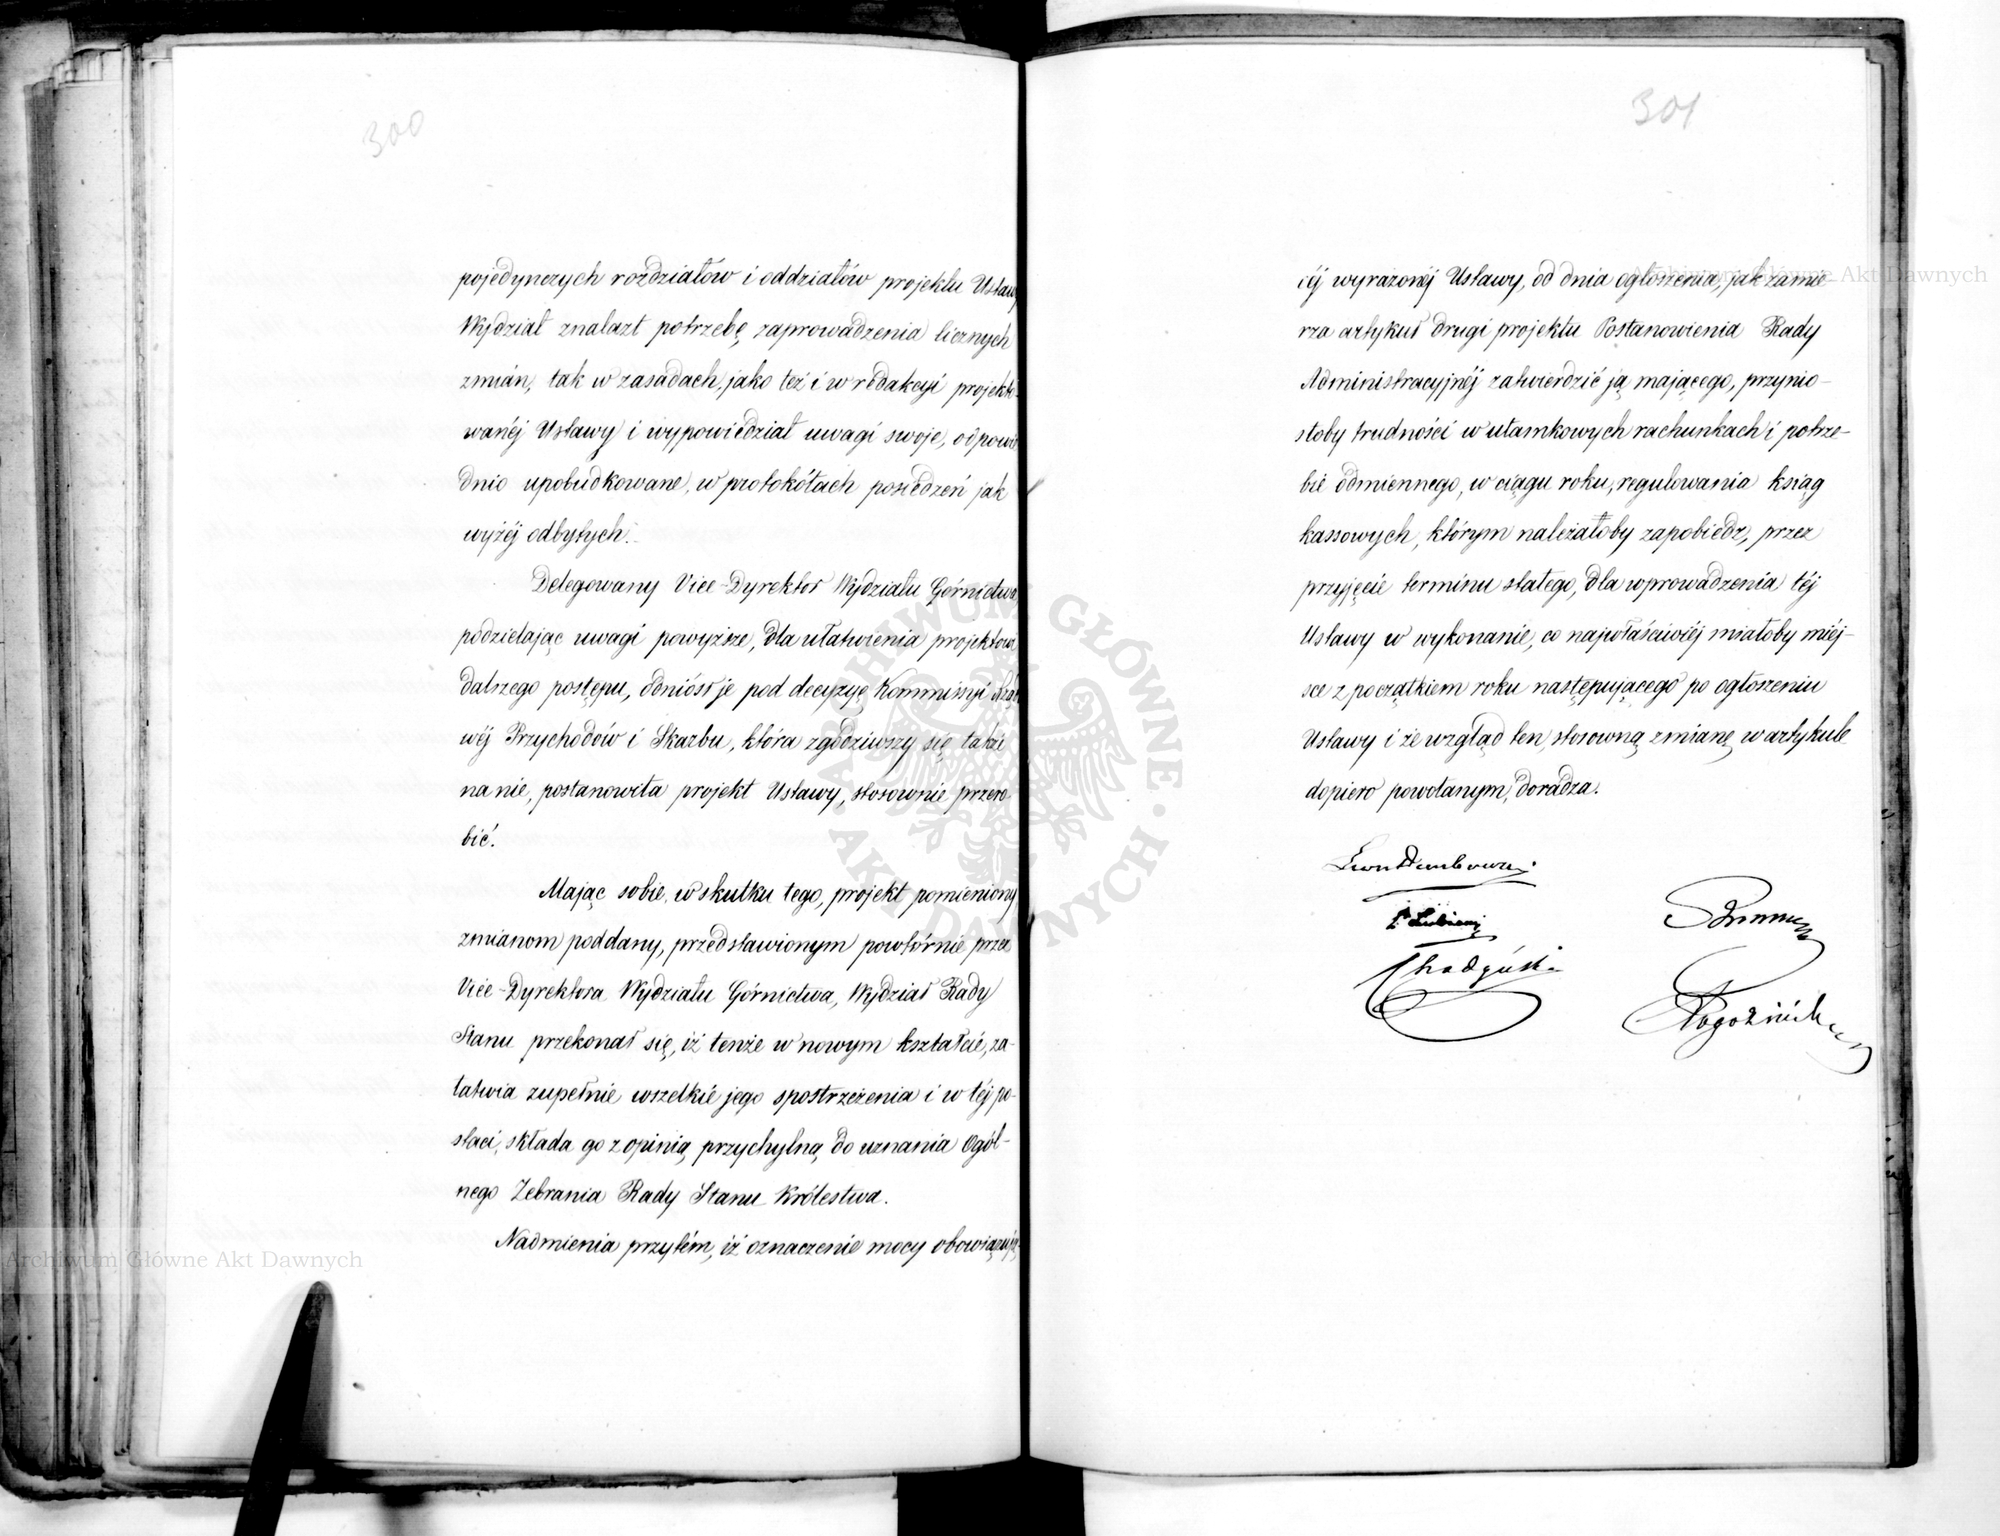 300
pojedynczych rozdziałów i oddziałów projektu Ustawy
Wydział znalazł potrzebę zaprowadzenia licznych
zmian, tak w zasadach, jako też i w redakcyi projekto-
wanéj Ustawy i wypowiedział uwagi swoje, odpowie
dnio upobudkowane, w protokółach posiedzeń jak
wyżéj odbytych.
Delegowany Vice-Dyrektor Wydziału Górnictwa,
podzielając uwagi powyższe, dla ułatwienia projektowi
dalszego postępu, odniósł je pod decyzyę Kommissyi Rządo
wéj Przychodów i Skarbu, która zgodziwszy się także
na nie, postanowiła projekt Ustawy, stosownie przero-
bić.
Mając sobie, w skutku tego, projekt pomieniony
zmianom poddany, przedstawionym powtórnie przez
Vice-Dyrektora Wydziału Górnictwa, Wydział Rady
Stanu przekonał się, iż tenże w nowym kształcie, za-
łatwia zupełnie wszelkie jego spostrzeżenia i w téj po-
staci, składa go z opinią przychylną, do uznania Ogól-
nego Zebrania Rady Stanu Królestwa.
Nadmienia przytém, iż oznaczenie mocy obowiązują-
301
céj wyrażonéj Ustawy, od dnia ogłoszenia, jak zamie-
rza artykuł drugi projektu Postanowienia Rady
Administracyjnéj zatwierdzić ją mającego, przynio-
słoby trudności w ułamkowych rachunkach i potrze-
bie odmiennego, w ciągu roku, regulowania ksiąg
kassowych, którym należałoby zapobiedz, przez
przyjęcie terminu stałego, dla wprowadzenia téj
Ustawy w wykonanie, co najwłaściwiéj miałoby miéj-
sce z początkiem roku następującego po ogłoszeniu
Ustawy i ze wzgląd ten, stosowną zmianę w artykule
dopiero powołanym, doradza.
Leon Dembowski
Archiwum Główne Akt Dawnych
Archiwum Główne Akt Dawnych
ARCHIWUM GŁÓWNE AKT DAWNYCH